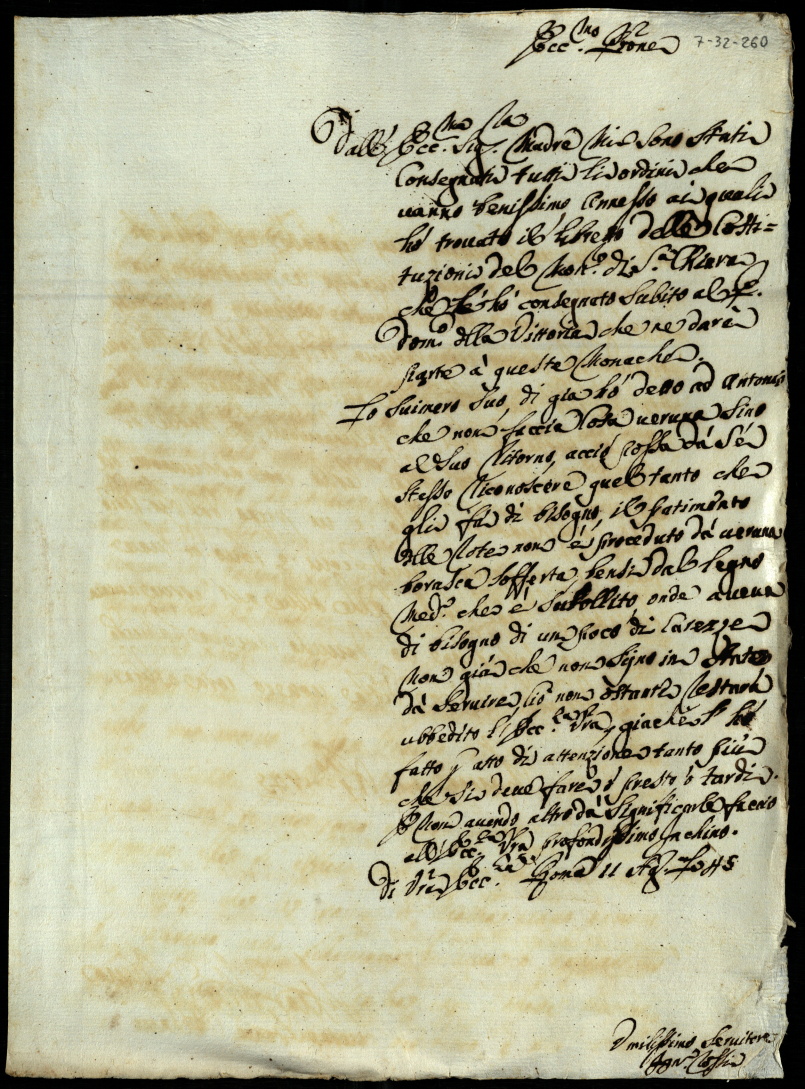 Ecc.mo Prone
7-32-260
Dall' Ecc.ma Sig.ra Madre Mi sono stati
Consegnati tutti li ordini che
vanno benissimo Annesso ai quali
hó trovato il libreto delle Costi=
tuzioni del Mon.o di S.a Chiara
che hó consegnato subito al P.
Dom.o della Vittoria che ne dará
parte á queste Monache.
Io di giá hó deto ad Antonio
che non faccia Cosa veruna sino
al suo Ritorno, acció possa dá sé
stesso Riconoscere quel tanto che
gli fá di bisogno, il patimento
delle Rote non é proceduto dá veruna
borasca sofferta, bensi dal legno
Med.o che é onde aveva
di bisogno di un poco di
Non giá che non sijno in stato
dá servire, ció non ostante Restará
ubbedito l'Ecc.za Vra, giaché l' hó
fatto p atto di attenzione tanto piú
che si deve fare ó presto ó tardi.
E Non avendo altro dá significarle faccio
all' Ecc.za Vra profondissimo inchino.
Di Vra Ecc.za Roma 11 Ag.to 1745
Umilissimo Servitore